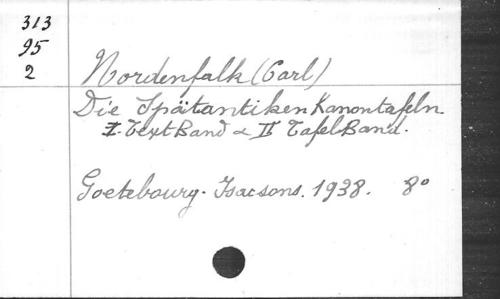 313
95
2
Nordenfalk (Carl)
Die Spätantiken Kanontafeln
I. Text Band & II Tafel Band.
Goetebourg. Isacsons. 1938. 8°